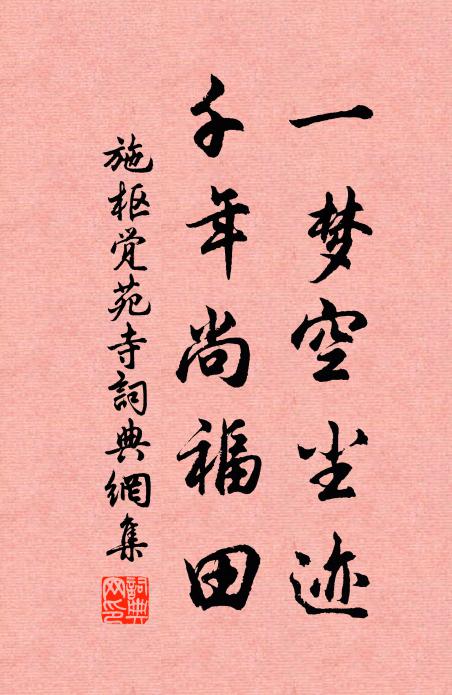 一梦空尘迹
千年尚福田
施枢觉苑寺詞典網集
詞典网印